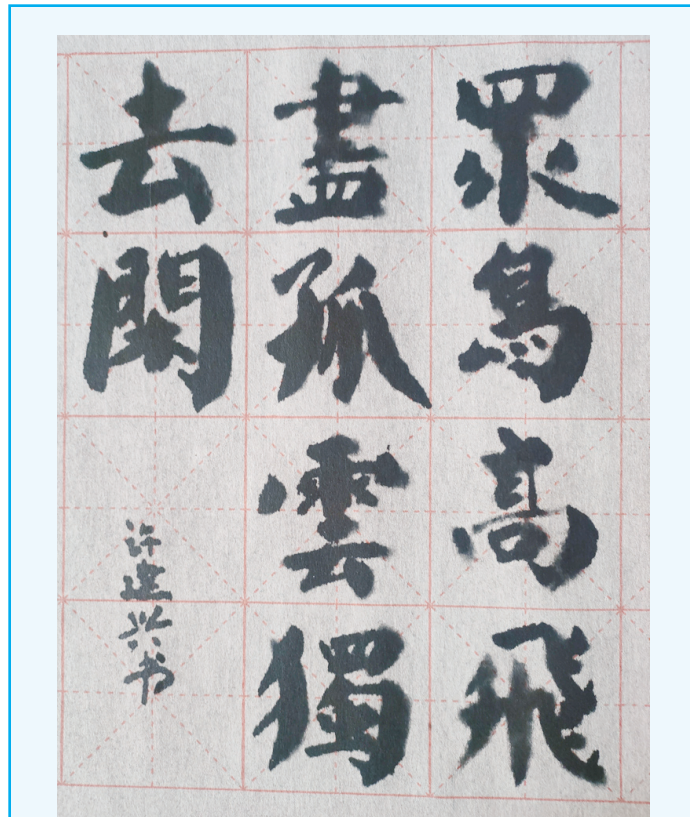 眾鳥高飛
盡孤雲獨
去閑
许建兴书